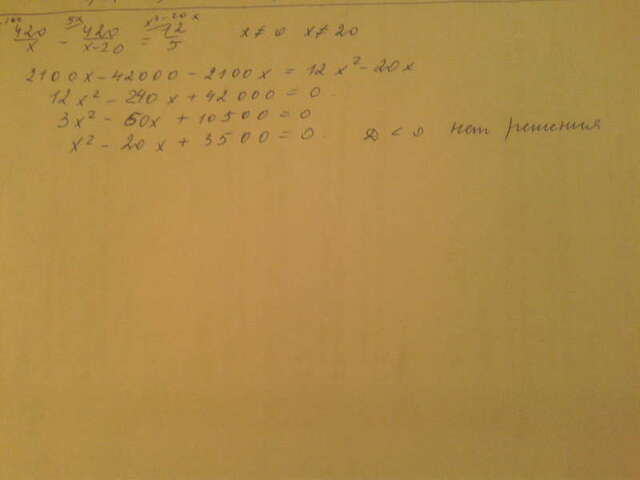 420/x - 420/x-20 = 12/5 x≠0 x≠20
2100x - 42000 - 2100x = 12x² - 20x
12x² - 240x + 42000 = 0.
3x² - 60x + 10500 = 0
x² - 20x + 3500 = 0. D < 0 нет решения